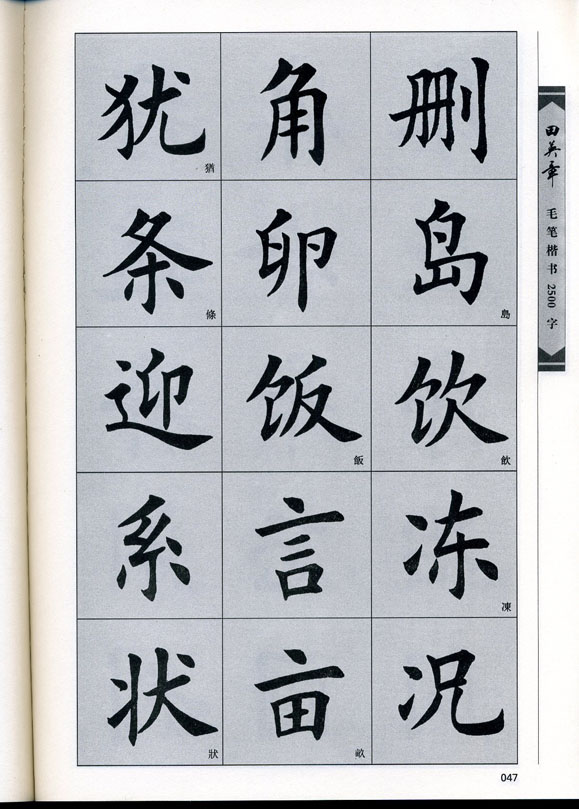 删 角 犹 猶
岛 島 卵 条 條
饮 飲 饭 飯 迎
冻 凍 言 系
况 亩 畝 状 狀
田英章
毛笔楷书2500字
047